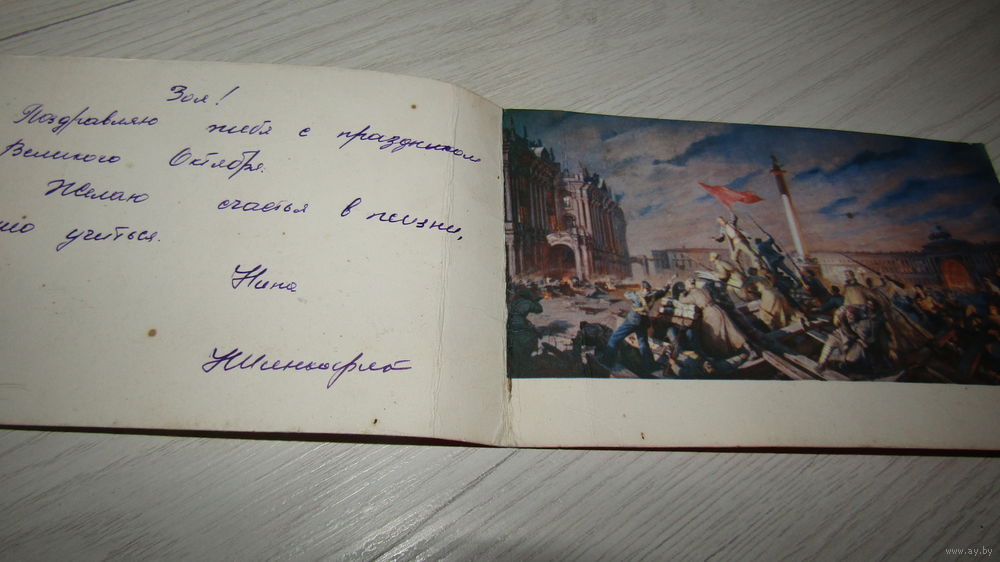 Зоя!
Поздравляю тебя с праздником
Великого Октября.
Желаю счастья в жизни,
учиться.
Нина
www.ay.by